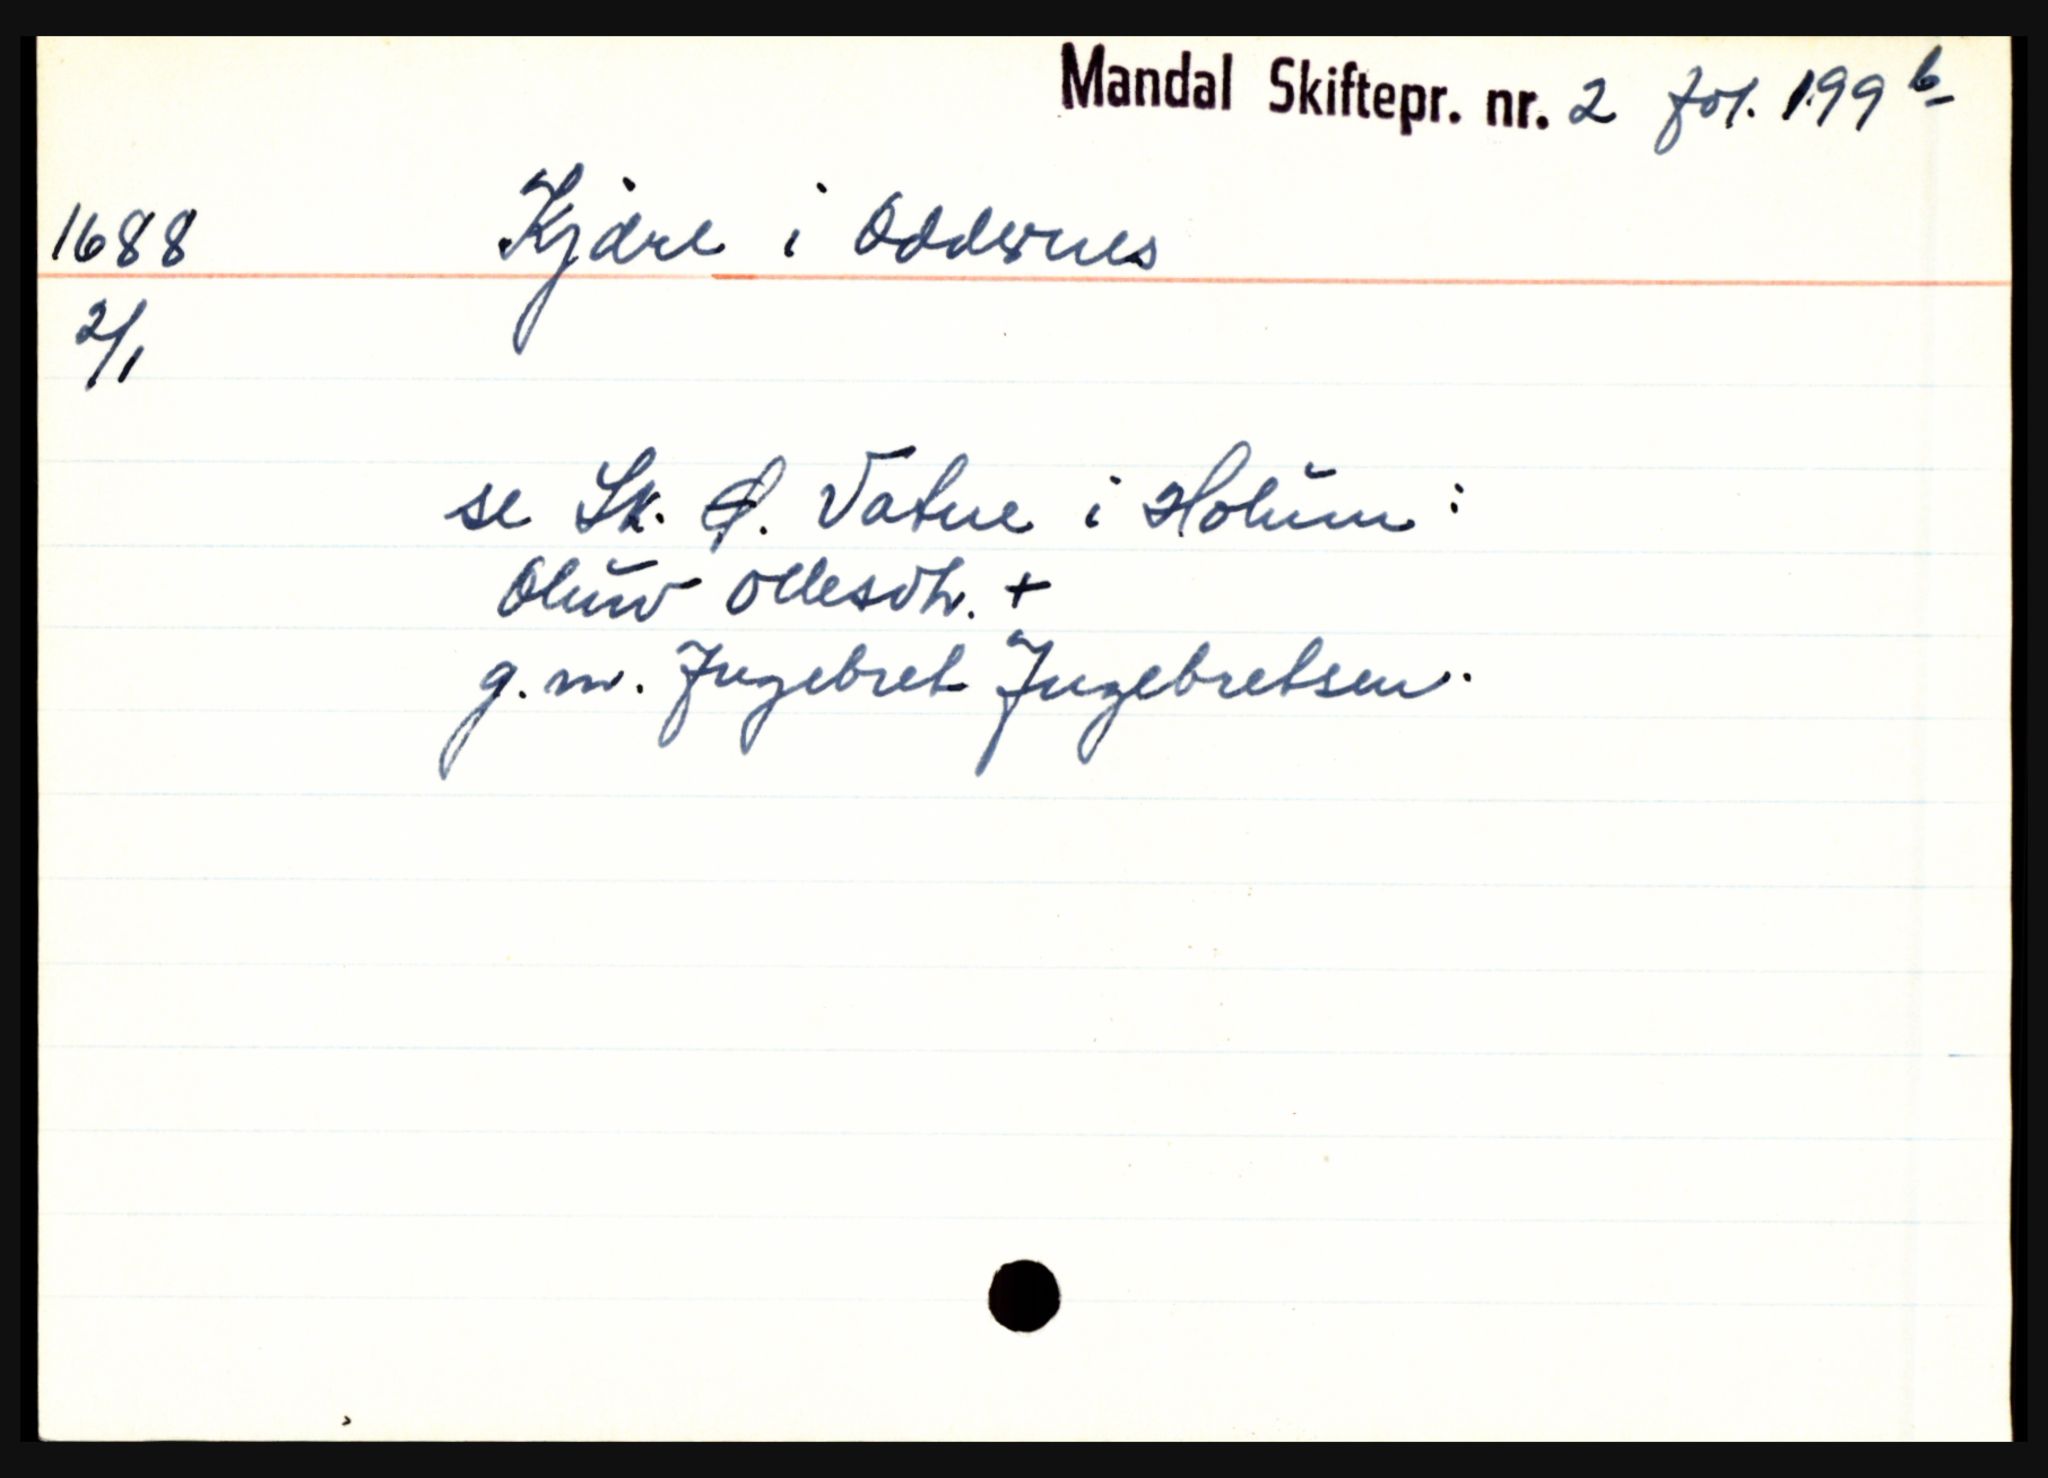 Mandal Skiftepr. nr. 2 fol. 199 b
1688 Kjære i Oddernes
2/1
se Sk. p. Vatne i Holŭm:
Olŭw Ollesdtr. +
g. m. Jngebret Jngebretsen.